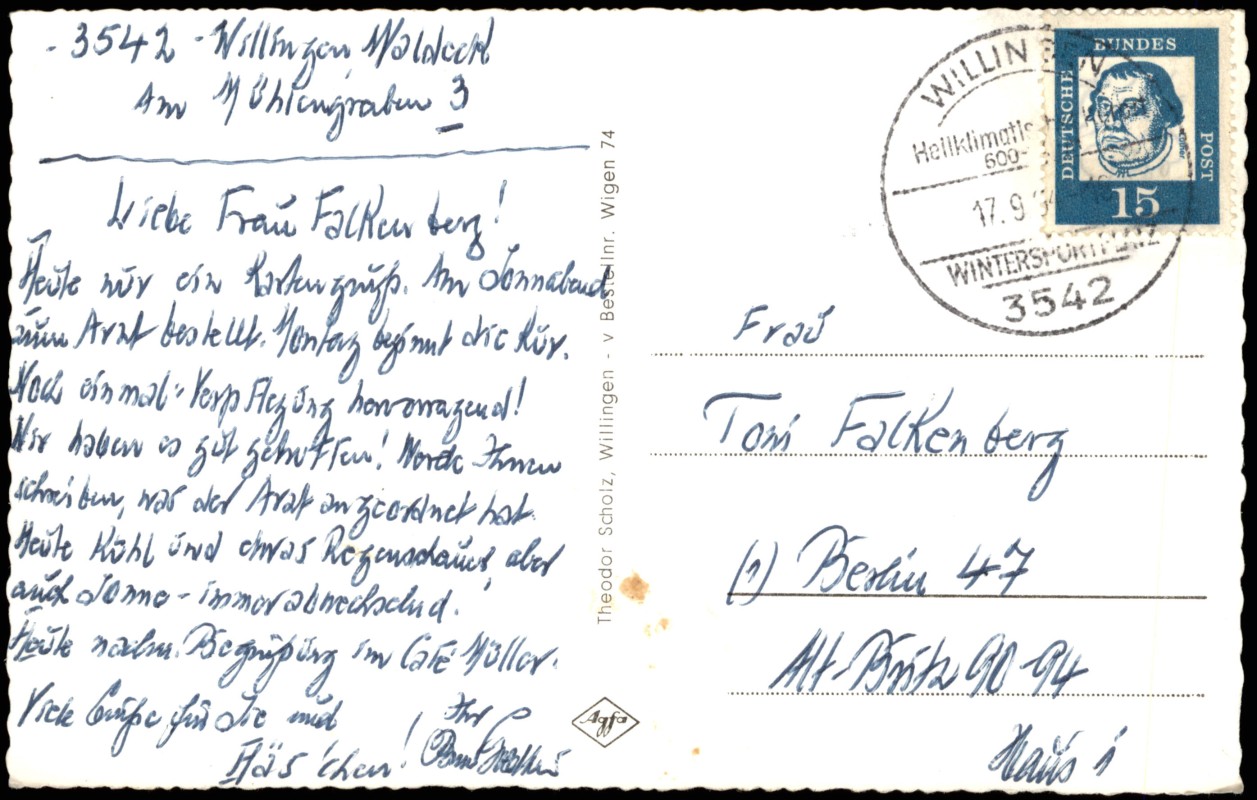 - 3542 - Willingen, Waldeck
Am Mühlengraben 3
Liebe Frau Falkenberg!
Heute nur ein Kartengruß. Am Sonnabend
zum Arzt bestellt. Montag beginnt die Kur.
Noch einmal: Verpflegung hervorragend!
Wir haben es gut getroffen! Werde Ihnen
schreiben, was der Arzt angeordnet hat.
Heute kühl und etwas Regenschauer, aber
auch Sonne - immer abwechselnd.
Heute nachm. Begrüßung im Café Müller.
Viele Grüße für Sie und
Häs'chen! Ihr
Theodor Scholz, Willingen - v Bestellnr. Wigen 74
Agfa
WILLINGEN
Heilklimatischer
600-
17.9.64
WINTERSPORTPLATZ
3542
DEUTSCHE BUNDESPOST
15
Frau
Toni Falkenberg
(1) Berlin 47
Alt-Britz 90-94
Haus 1